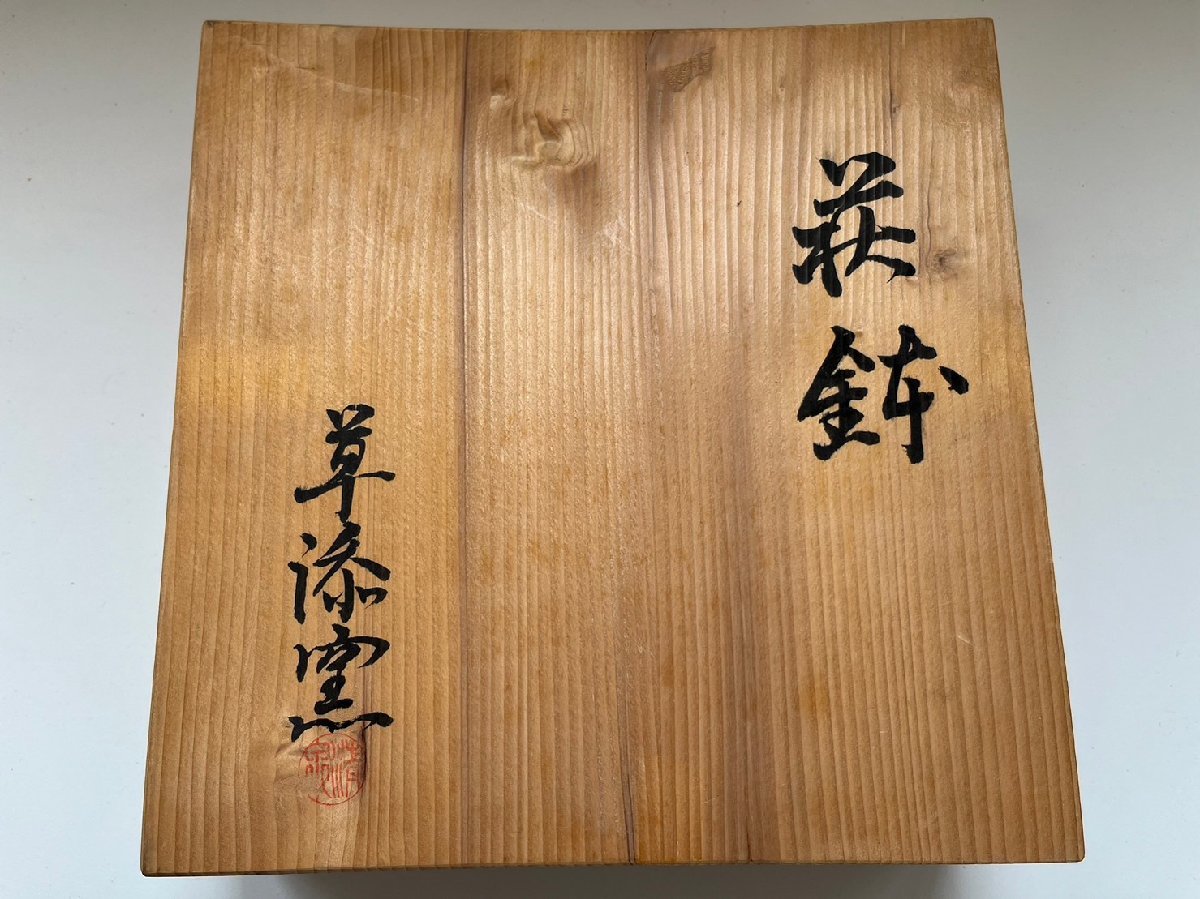 萩鉢
草漆窯